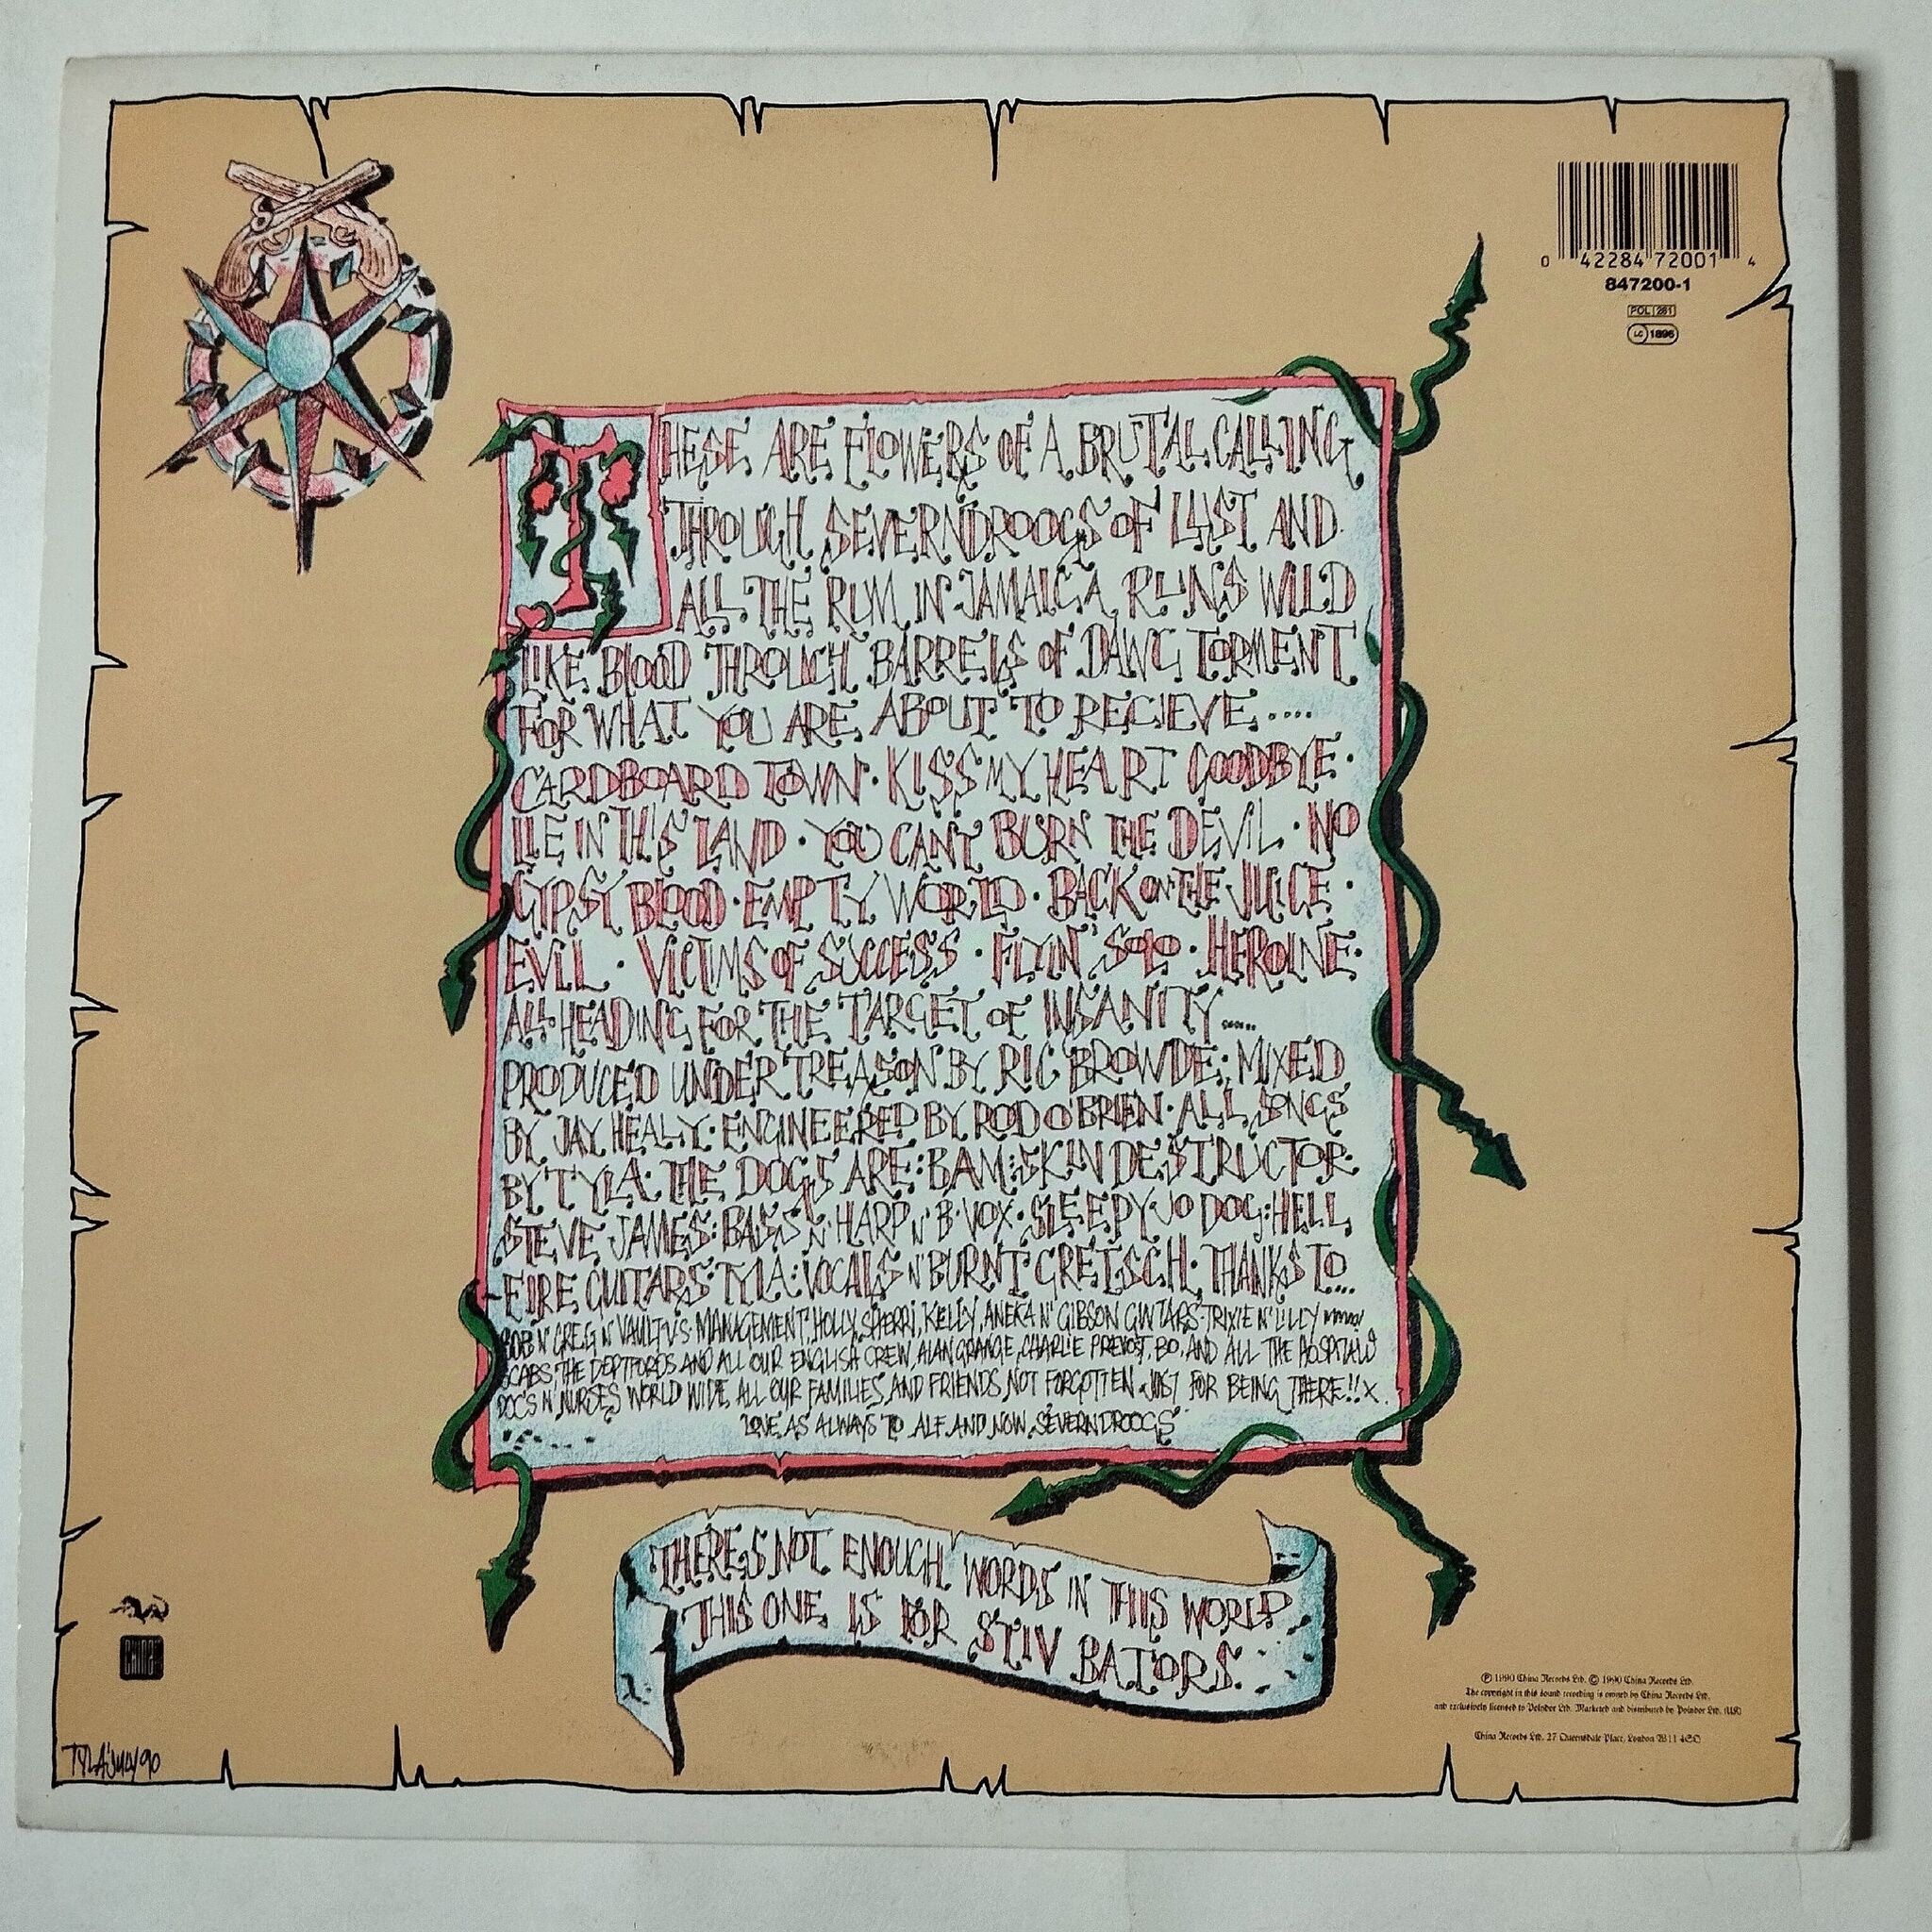 0 42284 72001 4
847200-1
POL 281
LC 1896
THESE ARE FLOWERS OF A BRUTAL CALLING
THROUGH SEVERNDROOGS OF LUST AND
ALL THE RUM IN JAMAICA RUNS WILD
LIKE BLOOD THROUGH BARRELS OF DAWG TORMENT
FOR WHAT YOU ARE ABOUT TO RECIEVE....
CARDBOARD TOWN · KISS MY HEART GOODBYE ·
LIE IN THIS LAND · YOU CAN'T BURN THE DEVIL · NO
GYPSY BLOOD · EMPTY WORLD · BACK ON THE JUICE ·
EVIL · VICTIMS OF SUCCESS · FLYIN' SOLO · HEROINE ·
ALL HEADING FOR THE TARGET OF INSANITY.....
PRODUCED UNDER TREASON BY RIC BROWDE · MIXED
BY JAY HEALY · ENGINEERED BY ROD O'BRIEN · ALL SONGS
BY TYLA · THE DOGS ARE : BAM : SKIN DESTRUCTOR ·
STEVE JAMES : BASS 'N' HARP N' B·VOX · SLEEPY JO DOG : HELL
FIRE GUITARS · TYLA : VOCALS N' BURNT GRETSCH · THANKS TO...
BOB N' GREG N' VAULT V'S MANAGEMENT, HOLLY, SHERRI, KELLY, ANEKA N' GIBSON GUITARS · TRIXIE N' LILLY
SCABS, THE DEPTFORDS AND ALL OUR ENGLISH CREW, ALAN GRANGE, CHARLIE PREVOST, BO, AND ALL THE HOSPITALS
DOC'S N' NURSES WORLD WIDE, ALL OUR FAMILIES, AND FRIENDS, NOT FORGOTTEN JUST FOR BEING THERE!! X.
LOVE AS ALWAYS TO ALF. AND NOW SEVERNDROOGS
THERE'S NOT ENOUGH WORDS IN THIS WORLD
THIS ONE IS FOR STIV BATORS.
CHINA
TYLA'JULY90
℗ 1990 China Records Ltd. © 1990 China Records Ltd.
The copyright in this sound recording is owned by China Records Ltd.
and exclusively licensed to Polydor Ltd. Marketed and distributed by Polydor Ltd. (UK)
China Records Ltd. 27 Queensdale Place, London W11 4SQ